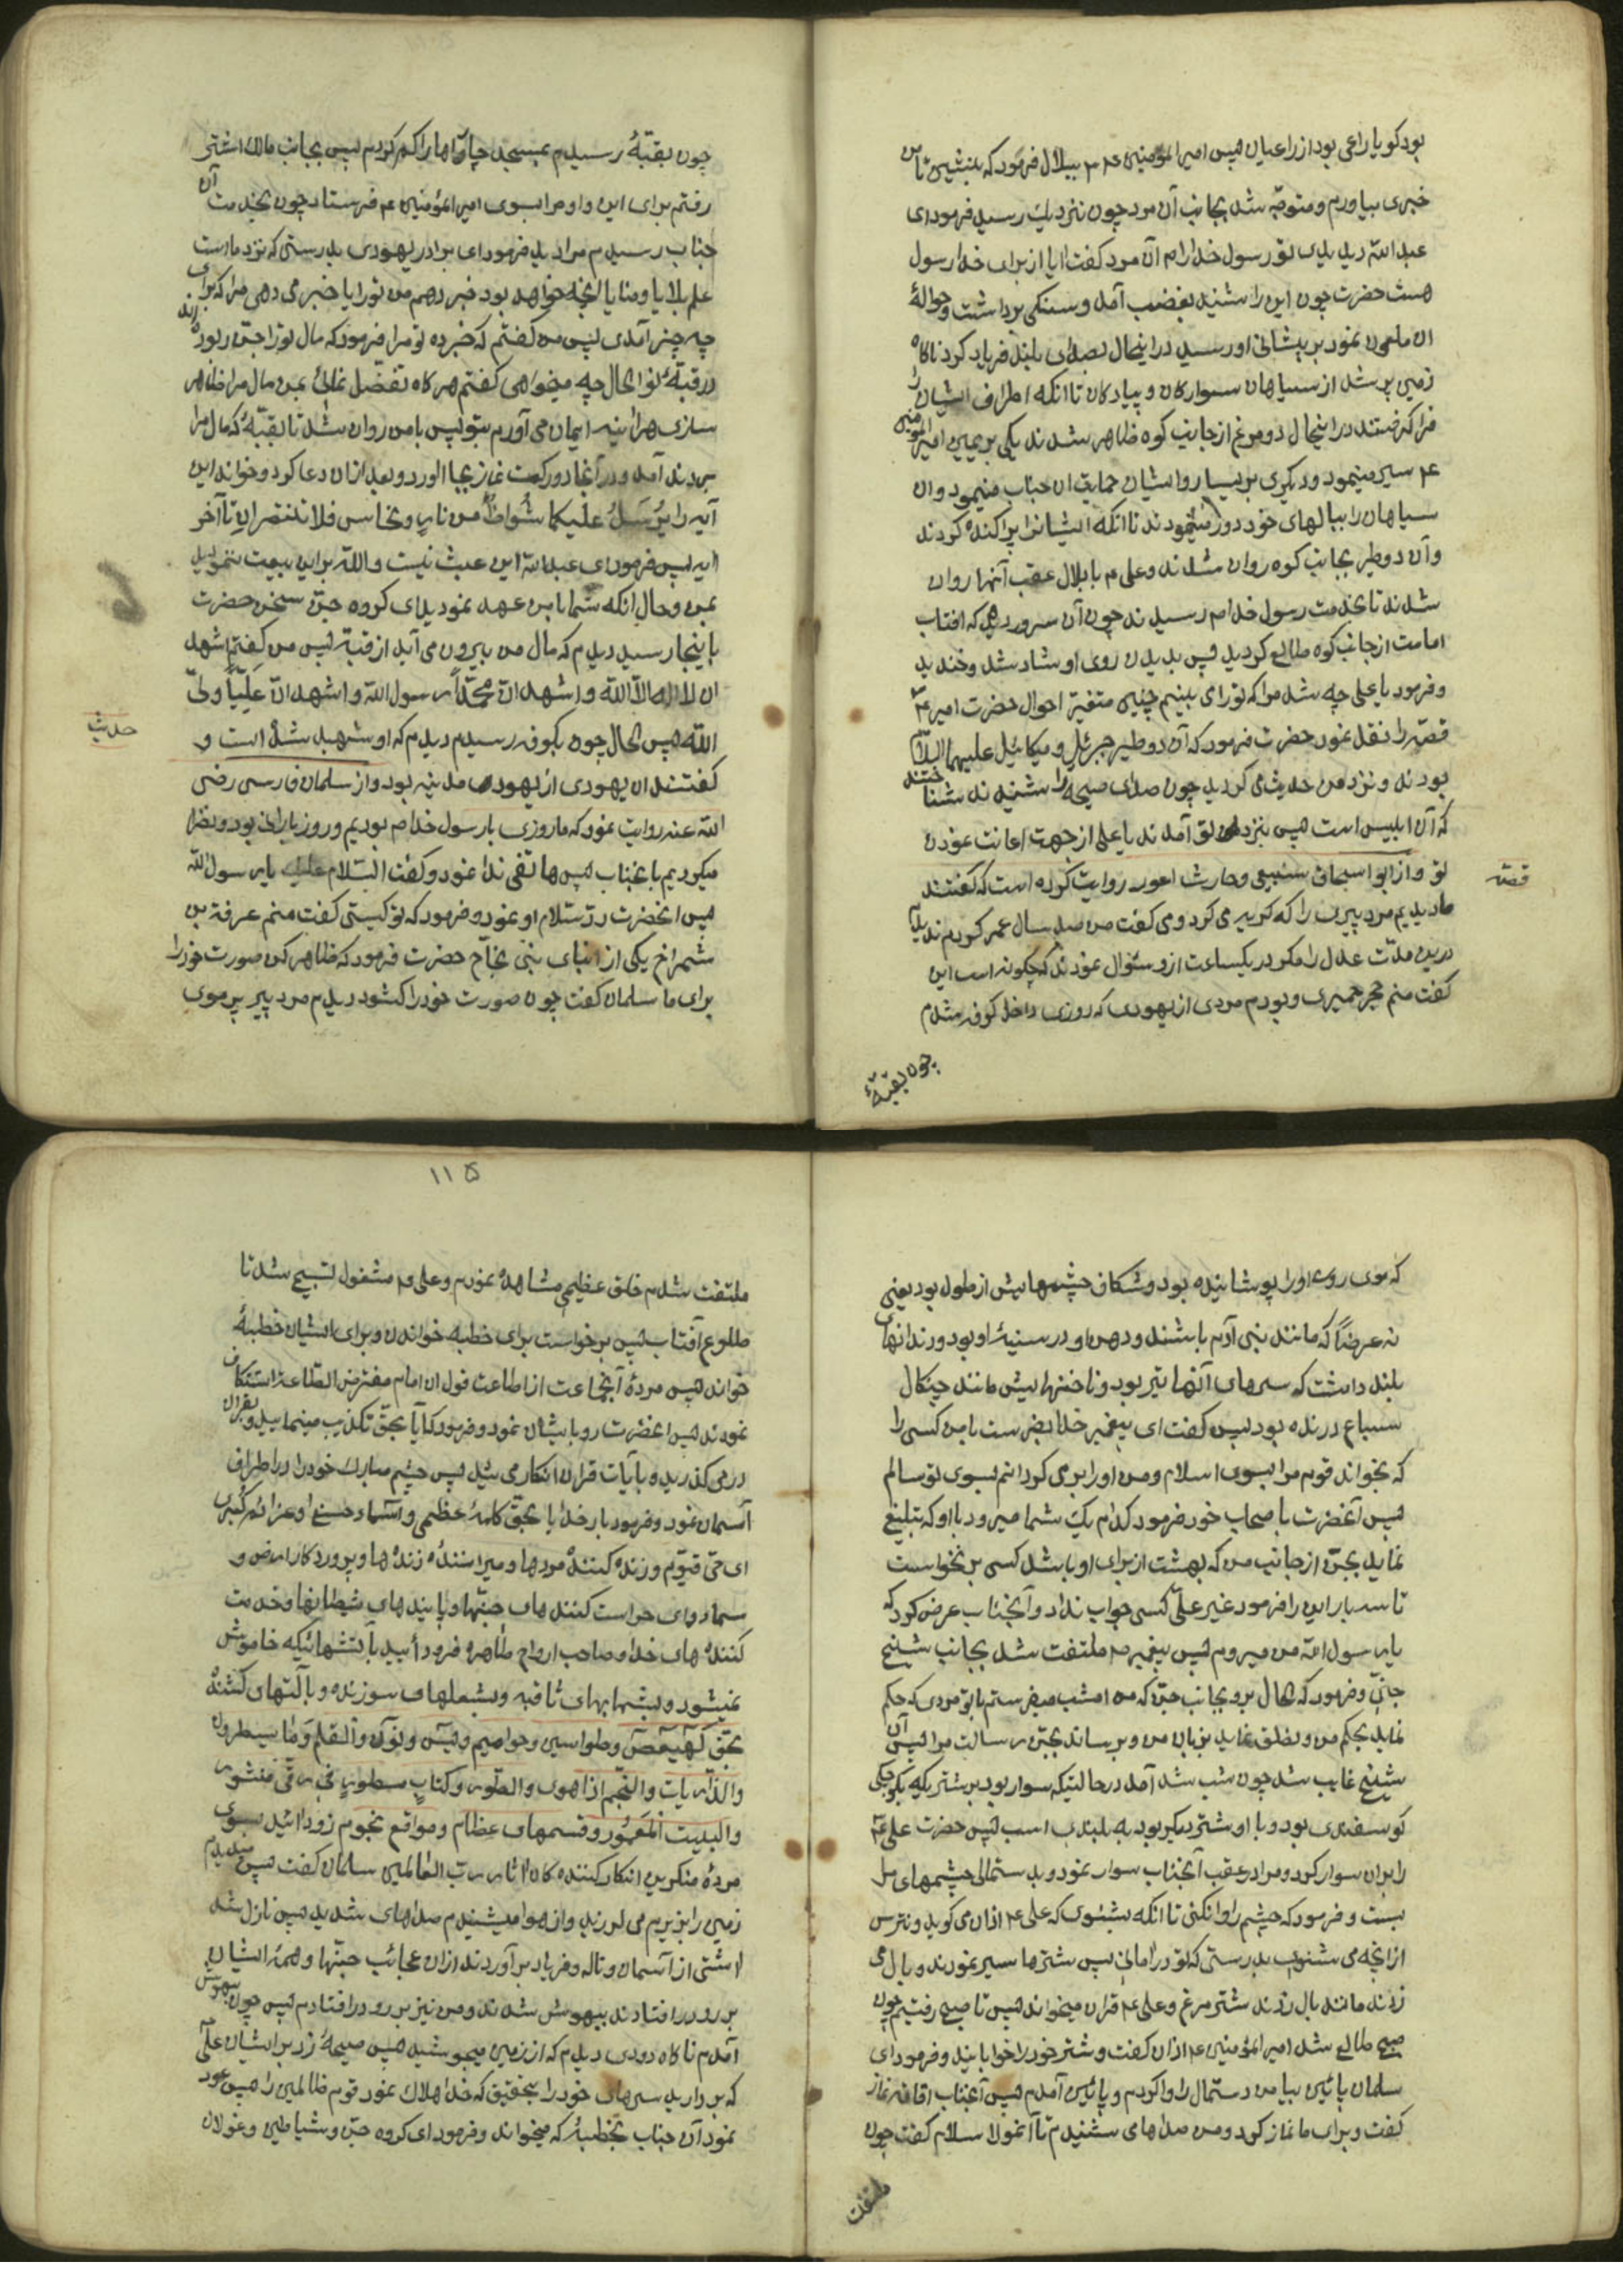 بود کویا راعی بود از راعیان پس امیر المؤمنین ع م ببلال فرمود که بنشین تا من
خبری بیاورم و متوجّه شد بجانب آن مرد چون نزدیک رسید فرمود ای
عبد الله دیدی تو رسول خدا را م آن مرد کفت ایا از برای خدا رسول
هست حضرت چون این را شنید بغضب آمد و سنکی برداشت و حوالهٔ
ان ملعون نمود بر پیشانی او رسید در اینحال بصدای بلند فریاد کرد ناکاه
زمین پر شد از سیاهان سوارکان و پیادکان تا انکه اطراف ایشان را
فرا کرفتند در اینحال دو مرغ از جانب کوه ظاهر شدند یکی بر یمین امیر المؤمنین
ع م سیر مینمود و دیکری بر یسار و ایشان حمایت ان جناب مینمود و ان
سیاهان را ببالهای خود دور مینمودند تا انکه ایشانرا پراکنده کردند
و آن دو طیر بجانب کوه روان شدند و علی م با بلال عقب آنها روان
شدند تا بخدمت رسول خدا م رسیدند چون آن سرور دید که افتاب
امامت از جانب کوه طالع کردید پس بدیدن روی او شاد شد و خندید
و فرمود یا علی چه شد مرا که تو را ی بینم چنین متغیّر احوال حضرت امیر ع م
قصّه را نقل نمود حضرت فرمود که آن دو طیر جبرئیل و میکائیل علیهما السلام
بودند و نزد من حدیث می کردید چون صدای صیحه را شنیدند شناختند
که آن ابلیس است پس بنزد تو آمدند یا علی از جهت اعانت نمودن
تو و از ابو اسحاق سبیعی و حارث اعور روایت کرده است که کفتند
ما دیدیم مرد پیری را که کریه می کرد و می کفت من صد سال عمر کردم ندیدم
درین مدّت عدل را مکر در یکساعت ازو سئوال نمودند که چکونه است این
کفت منم حجر حمیری و بودم مردی از یهودی که روزی داخل کوفه شدم
چون بقبّهٔ
قصّه
چون بقبّهٔ رسیدم بمسجد چارواها را کم کردم پس بجانب مالک اشتر
رفتم برای این و او مرا بسوی امیر المؤمنین ع فرستاد چون بخدمت آن
جناب رسیدم مرا دید فرمود ای برادر یهودی بدرستی که نزد ما است
علم بلایا و منایا انچه خواهد بود خبر دهم من تو را یا خبر می دهی مرا که برای
چه چیز آمدی پس من کفتم که خبر ده تو مرا فرمود که مال تو را جنّ ربوده اند
در قبّه تو الحال چه میخواهی کفتم هرکاه تفضّل نمائی بمن مال مرا ظاهر
سازی هر آینه ایمان می آورم بتو پس با من روان شد تا بقبّهٔ که مال مرا
بردند آمد و در آنجا دو رکعت نماز بجا اورد و بعد از ان دعا کرد و خواند این
آیه را یُرسَلُ علیکما شُواظٌ من نارٍ و نحاس فلا تنتصران تا آخر
ایه پس فرمود ای عبد الله این عبث نیست و الله بر این بیعت ننمودید
بمن و حال انکه شما با من عهد نمودید ای کروه جنّ سخن حضرت
باینجا رسید دیدم که مال من بیرون می آید از قبّه پس من کفتم اشهد
ان لا اله الّا الله و اشهد انّ محمّداً رسول الله و اشهد انّ علیّاً ولیّ
الله پس الحال چون بکوفه رسیدم دیدم که او شهید شده است و
کفتند ان یهودی از یهودی مدینه بود و از سلمان فارسی رضی
الله عنه روایت نمود که ما روزی با رسول خدا م بودیم و روز بارانی بود و نظر
میکردیم با نجناب پس هاتفی ندا نمود و کفت السّلام علیک یا رسول الله
پس انحضرت ردّ سلام او نمود و فرمود که تو کیستی کفت منم عرفة بن
شمراخ یکی از ابنای بنی نجاح حضرت فرمود که ظاهر کن صورت خود را
برای ما سلمان کفت چون صورت خود را کشود دیدم مرد پیر پر موی
حدیث
که موی روی او را پوشانیده بود و شکاف چشمهایش از طول بود یعنی
نه عرضاً که مانند بنی آدم باشند و دهن او در سینهٔ او بود و دندانهای
بلند داشت که سرهای آنها تیر بود و ناخنهایش مانند چنکال
سباع درنده بود پس کفت ای پیغمبر خدا بفرست با من کسی را
که بخواند قوم مرا بسوی اسلام و من او را بر می کردانم بسوی تو سالم
پس آنحضرت با صحاب خود فرمود کدام یک شما میرود با او که تبلیغ
نماید بجنّ از جانب من که بهشت از برای او باشد کسی بر نخواست
تا سه بار این را فرمود غیر علیّ کسی جواب نداد و آنجناب عرض کرد که
یا رسول الله من میروم پس پیغمبر م ملتفت شد بجانب شیخ
جنّی و فرمود که الحال برو بجانب جنّ که من امشب میفرستم با تو مردی که حکم
نماید بحکم من و نطق نماید بزبان من و برساند بجنّ رسالت مرا پس آن
شیخ غایب شد چون شب شد آمد در حالتیکه سوار بود بر شتریکه بکوچکی
کوسفندی بود و با او شتر دیکر بود به بلندی اسب پس حضرت علی ع م
را بران سوار کرد و مرا در عقب آنجناب سوار نمود و بدستمالی چشمهای مرا
بست و فرمود که چشم را وا نکنی تا انکه بشنوی که علی ع م اذان می کوید و نترس
از انچه می شنوی بدرستی که تو در امانی پس شترها سیر نمودند و بال می
زدند مانند بال زدند شتر مرغ و علی ع م قران میخواند پس تا صبح رفتیم چون
صبح طالع شد امیر المؤمنین ع م اذان کفت و شتر خود را خوابانید و فرمود ای
سلمان پائین بیا من دستمال را وا کردم و پائین آمدم پس آنجناب اقامه نماز
کفت و برای ما نماز کرد و من صداهای شنیدم تا آنمولا سلام کفت چون
ملتفت
۱۱۵
ملتفت شدم خلق عظیمی مشاهده نمودم و علی م مشغول تسبیح شد تا
طلوع آفتاب پس برخواست برای خطبه خواندن و برای ایشان خطبهٔ
خواند پس مردهٔ آنجماعت از اطاعت قول ان امام مفترض الطّاعة استنکاف
نمودند پس انحضرت رو با یشان نمود و فرمود که آیا بحقّ تکذیب مینمایید و بقران
در می کذرید و بآیات قران انکار می شید پس چشم مبارک خود را در اطراف
آسمان نمود و فرمود بار خدایا بحقّ کلمهٔ عظمی و اسماء حسنی و عزائم کبری
ای حیّ قیّوم و زنده کنندهٔ مردها و میرانندهٔ زنده ها و پروردکار ارض و
سما و ای حراست کننده های جنّها و پایندهای شیطانها و خدمت
کنندهٔ های خدا و صاحب ارواح طاهره فرود آیید بآتشهائیکه خاموش
نمیشود و بشهابهای ثاقبه و بشعلهای سوزنده و بآلتهای کشنده
بحقّ کهیعص و طواسین و حوامیم و یس و نون والقلم و ما یسطرون
والذّاریات والنّجم اذا هوی والطّور و کتاب مسطورٍ فی رقّ منشور
والبیت المعمور و قسمهای عظام و مواقع نجوم زود آئید بسوی
مردهٔ منکرین انکار کننده کان اثار ربّ العالمین سلمان کفت پس دیدم
زمین را بزیرم می لرزید و از هوا میشنیدم صداهای شدید پس نازل شد
اتشی از آسمان و ناله و فریاد بر آوردند از ان عجائب جنّها و همهٔ ایشان
بر رو در افتادند بیهوش شدند و من نیز برو در افتادم پس چون بهوش
آمدم ناکاه دودی دیدم که از زمین میجوشید پس صیحهٔ زد بر ایشان علیّ
که بردارید سرهای خود را بتحقیق که خدا هلاک نمود قوم ظالمین را پس عود
نمود آن جناب بخطبهٔ که میخواند و فرمود ای کروه جنّ و شیاطین و غولان